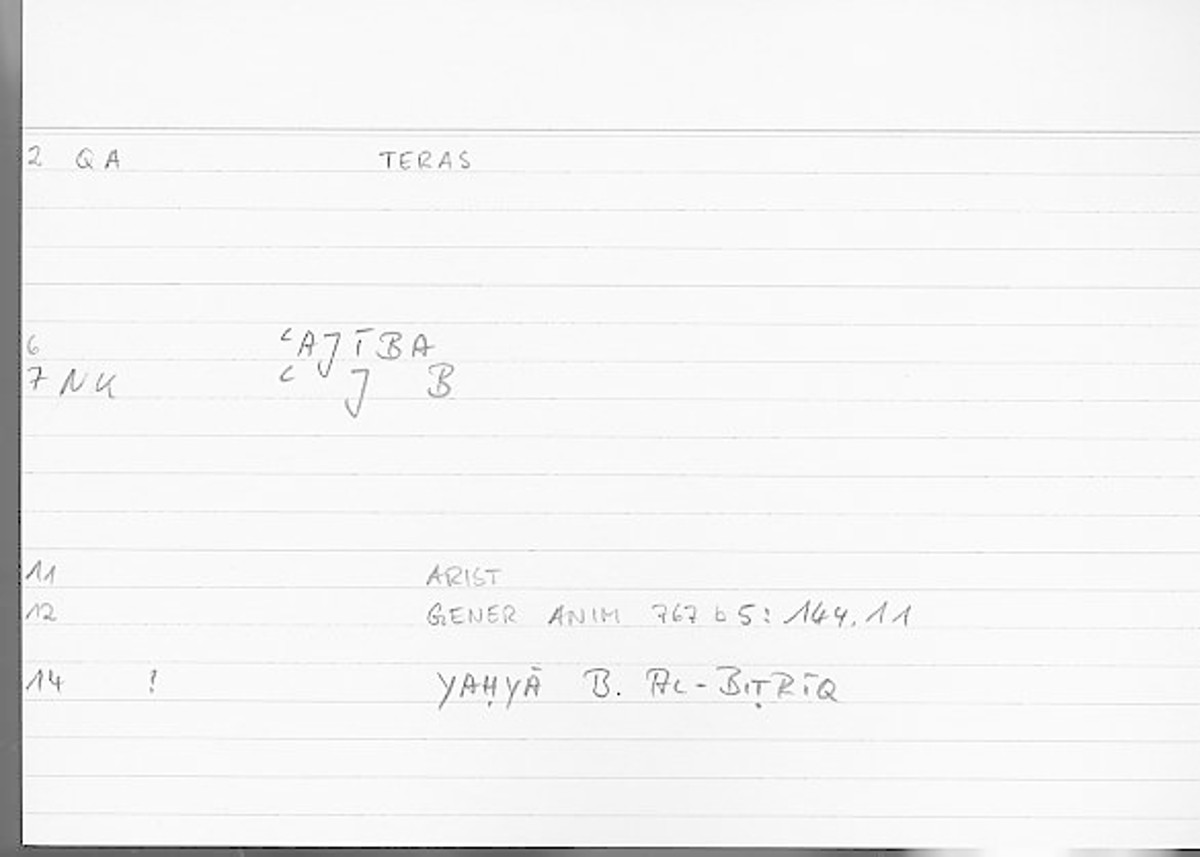 2 QA TERAS
6 ʿAJĪBA
7 NU ʿ J B
11 ARIST
12 GENER ANIM 767 b 5: 144.11
14 ! YAḤYĀ B. AL-BIṬRĪQ